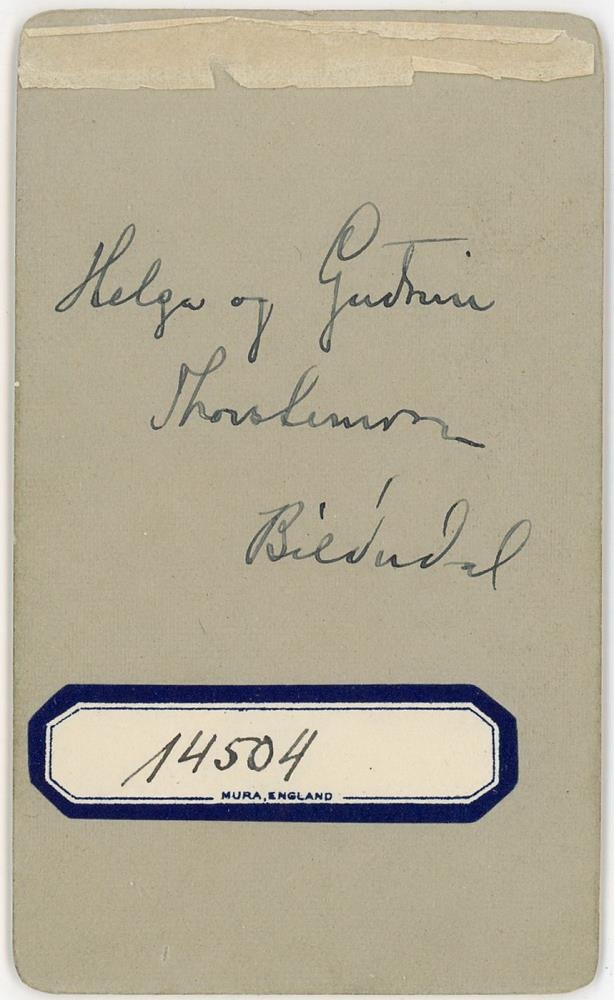 Helga og Guðrún
Thorsteinson
Bíldudal
14504
MURA, ENGLAND